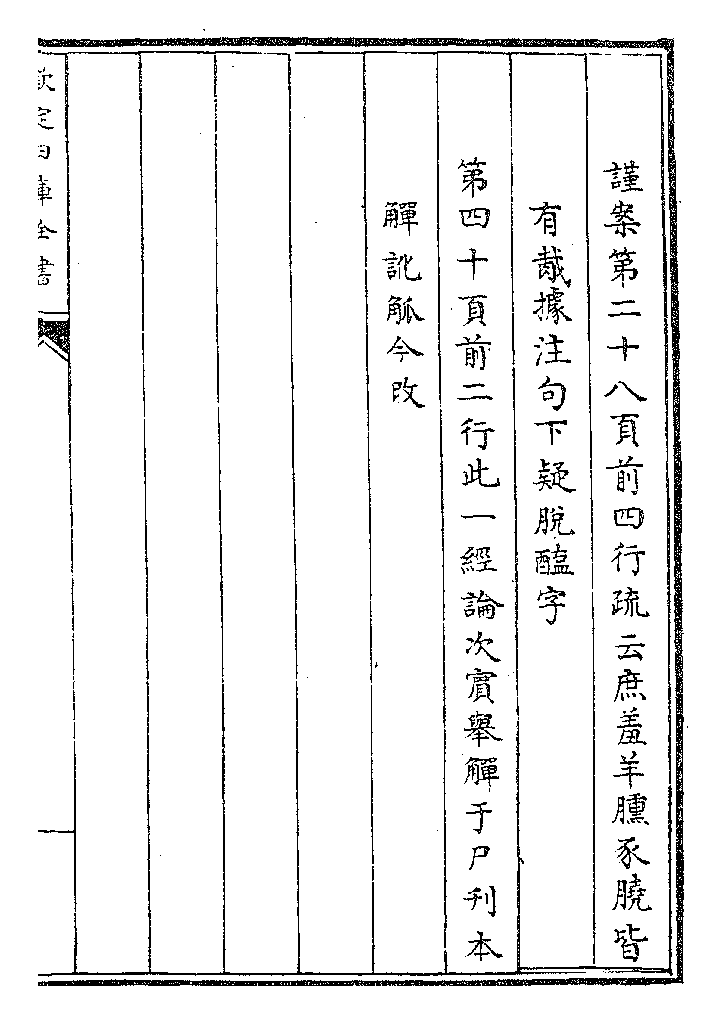 謹案第二十八頁前四行疏云庶羞羊臐豕膮皆
有胾據注句下疑脫醢字
第四十頁前二行此一經論次賓舉觶于尸刊本
觶訛觚今改
欽定四庫全書